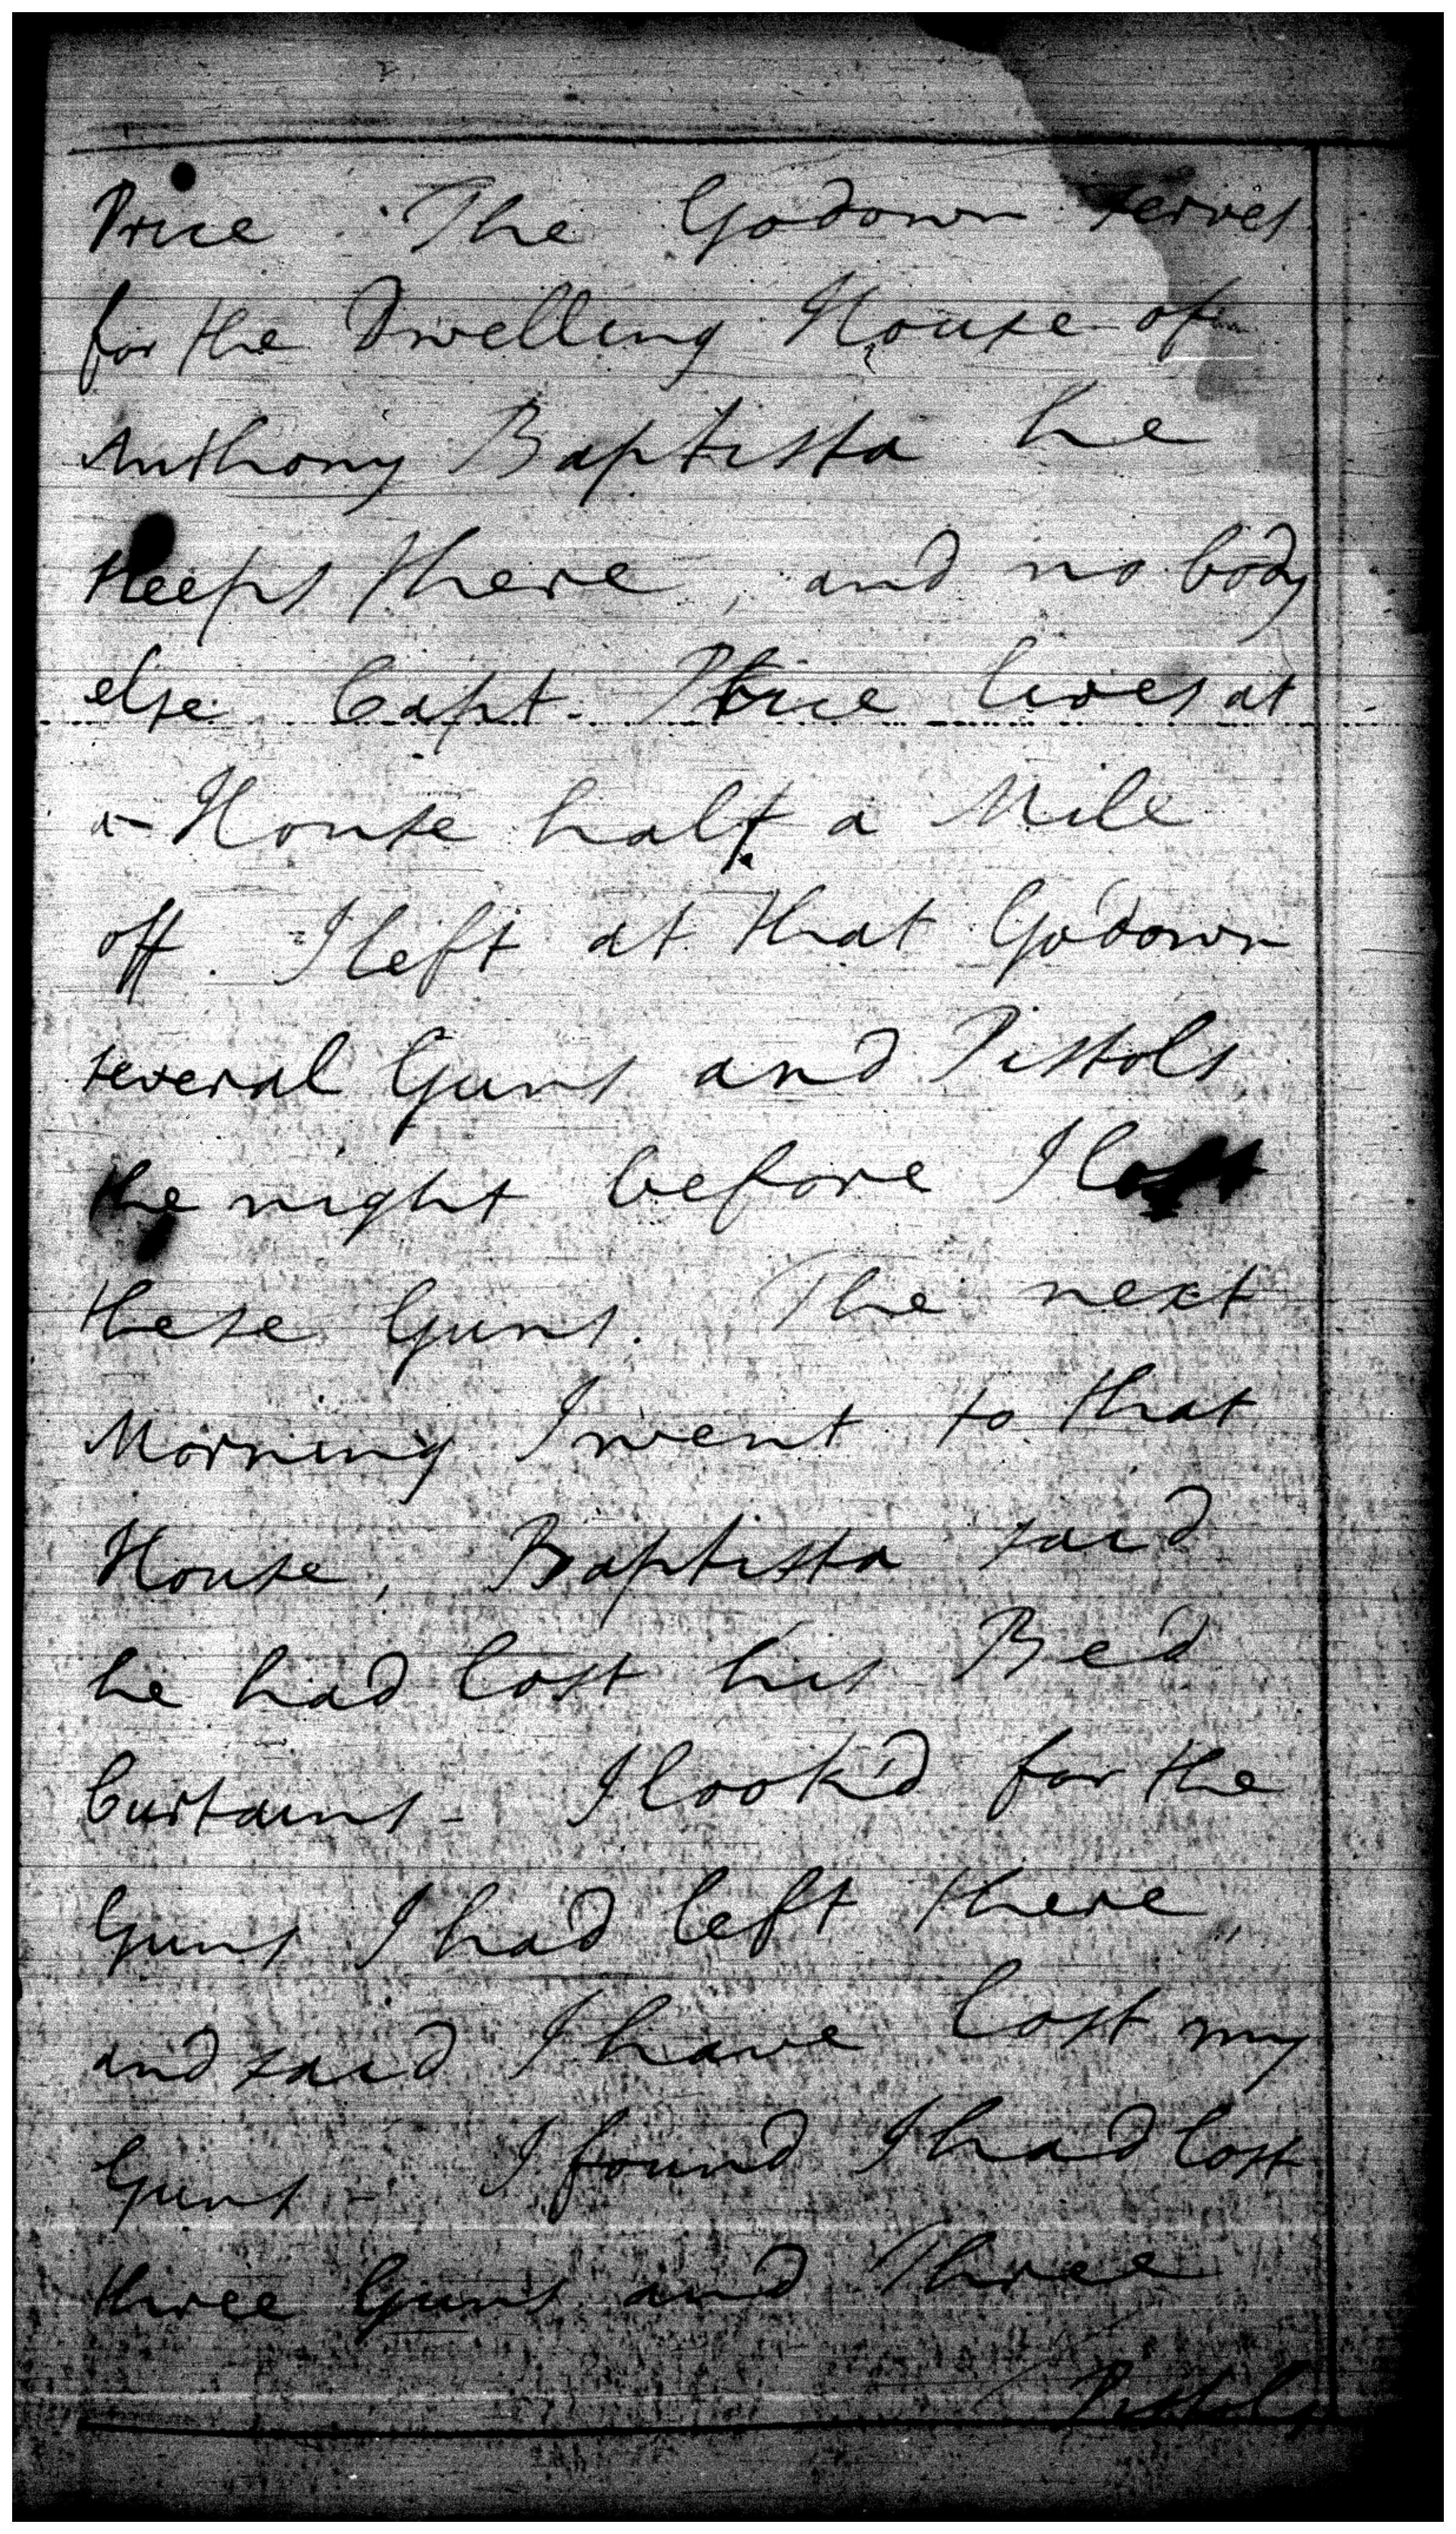 Price. The Godown serves
for the Dwelling House of
Anthony Baptista he
sleeps there, and no body
else. Capt. Price lives at
a House half a Mile
off. I left at that Godown
several Guns and Pistols
the night before I lost
these Guns. The next
Morning I went to that
House, Baptista said
he had lost his Bed
Curtains - I look'd for the
Guns I had left there,
and said I have lost my
Guns - I found I had lost
three Guns and Three
Pistols